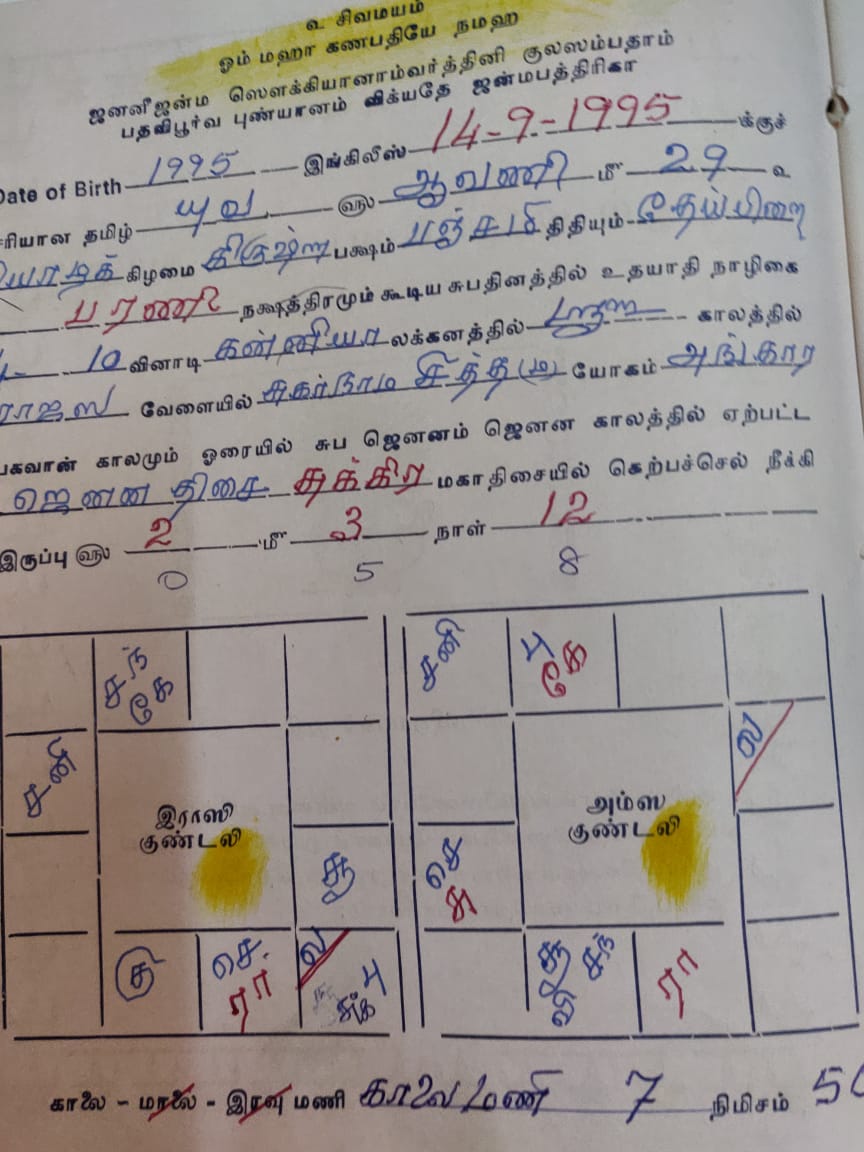 உ சிவமயம்
ஓம் மஹா கணபதியே நமஹ
ஜனனீஜன்ம ஸௌக்கியானாம்வர்த்தினி குலஸம்பதாம்
பதவிபூர்வ புண்யானம் விக்யதே ஜன்மபத்திரிகா
Date of Birth 1995 இங்கிலீஸ் 14-9-1995 க்குச்
சரியான தமிழ் யுவ ௵ ஆவணி மீ 29 உ
கிழமை கிருஷ்ண பக்ஷம் பஞ்சமி திதியும் தேய்பிறை
பரணி நக்ஷத்திரமும் கூடிய சுபதினத்தில் உதயாதி நாழிகை
10 வினாடி கன்னியா லக்கனத்தில் காலத்தில்
ராஜஸ வேளையில் சித்த யோகம் அங்கார
பகவான் காலமும் ஓரையில் சுப ஜெனனம் ஜெனன காலத்தில் ஏற்பட்ட
ஜெனன திசை சுக்கிர மகாதிசையில் கெற்பச்செல் நீக்கி
இருப்பு ௵ 2 மீ 3 நாள் 12
0 5 8
சந் கே
சனி
இராஸி
குண்டலி
சூ
செ ரா
ல
சுக் பு
சனி
பு கே
ல
அம்ஸ
குண்டலி
செ சு
சூ சந்
ரா
காலை - மாலை - இரவு மணி காலை மணி 7 நிமிசம்